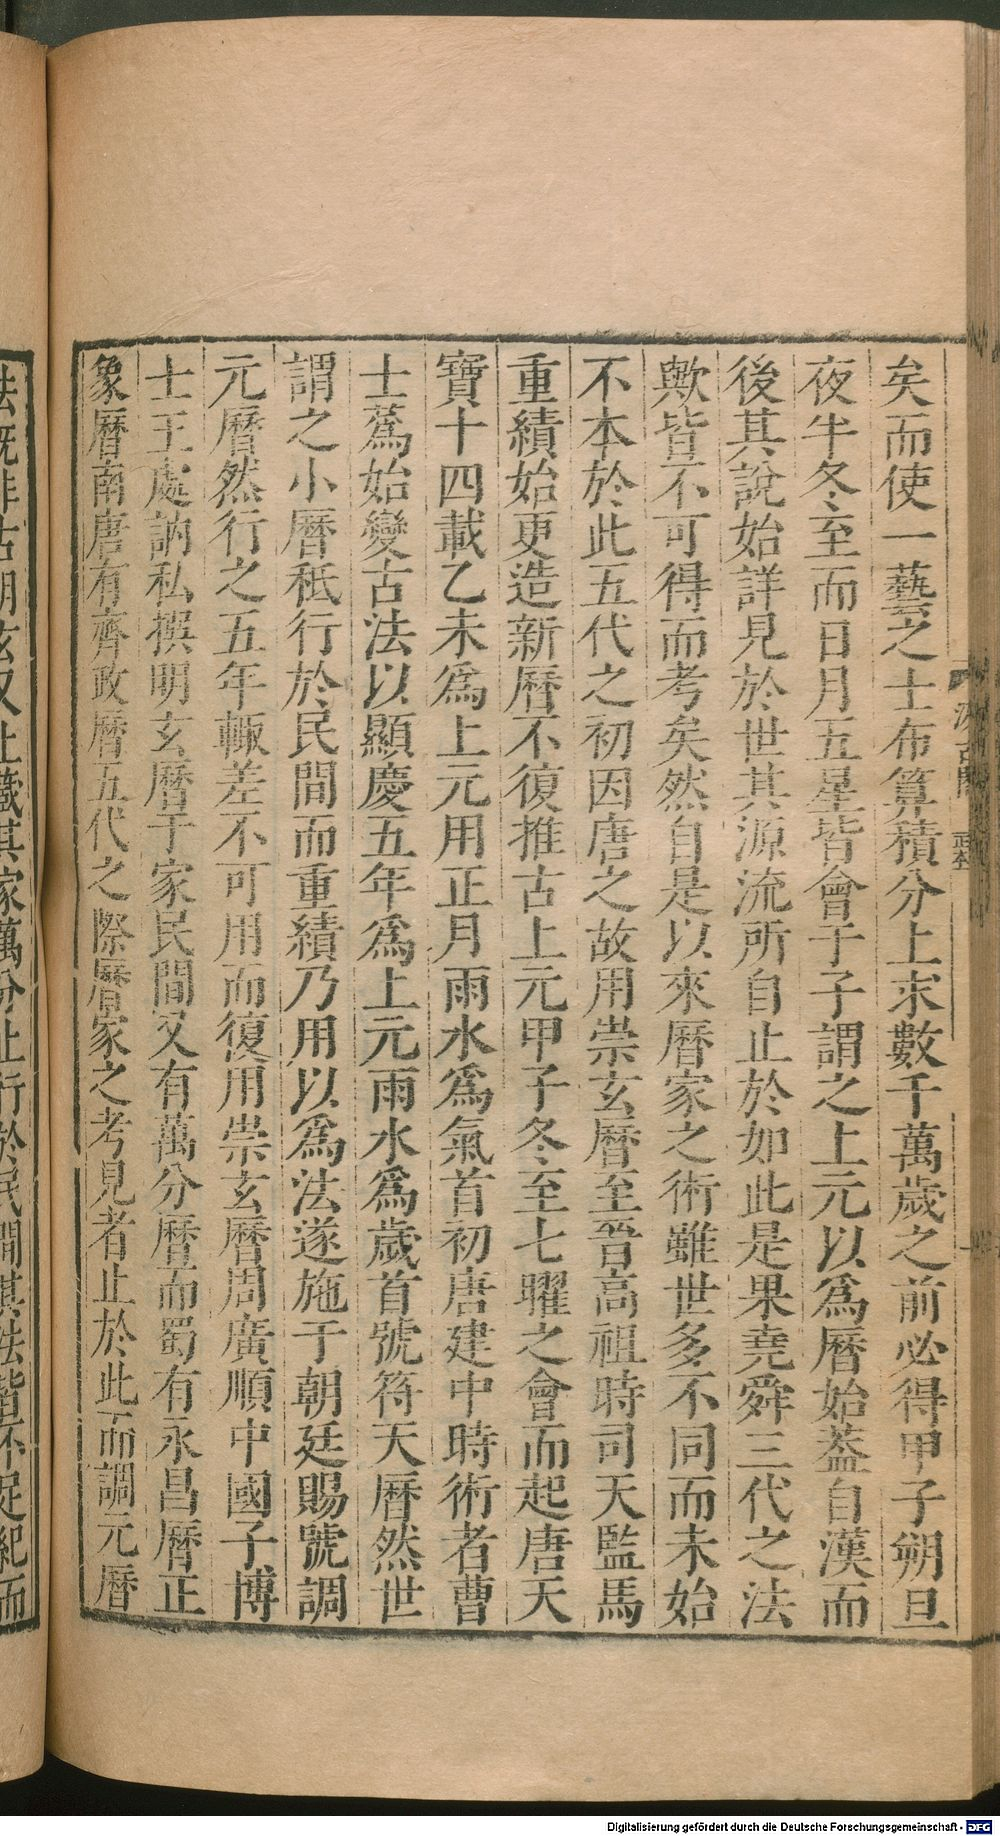 矣而使一藝之士布算積分上求數千萬歲之前必得甲子朔旦
夜半冬至而日月五星皆會于子謂之上元以爲曆始葢自漢而
後其說始詳見於世其源流所自止於如此是果堯舜三代之法
歟皆不可得而考矣然自是以來曆家之術雖世多不同而未始
不本於此五代之初因唐之故用崇玄曆至晉高祖時司天監馬
重績始更造新曆不復推古上元甲子冬至七曜之會而起唐天
寶十四載乙未爲上元用正月雨水爲氣首初唐建中時術者曹
士蔿始變古法以顯慶五年爲上元雨水爲歲首號符天曆然世
謂之小曆秪行於民間而重績乃用以爲法遂施于朝廷賜號調
元曆然行之五年輙差不可用而復用崇玄曆周廣順中國子博
士王處訥私撰明玄曆于家民間又有萬分曆而蜀有永昌曆正
象曆南唐有齊政曆五代之際曆家之考見者止於此而調元曆
法旣非古明玄又止藏其家萬分止行於民間其法皆不足紀而
Digitalisierung gefördert durch die Deutsche Forschungsgemeinschaft - DFG